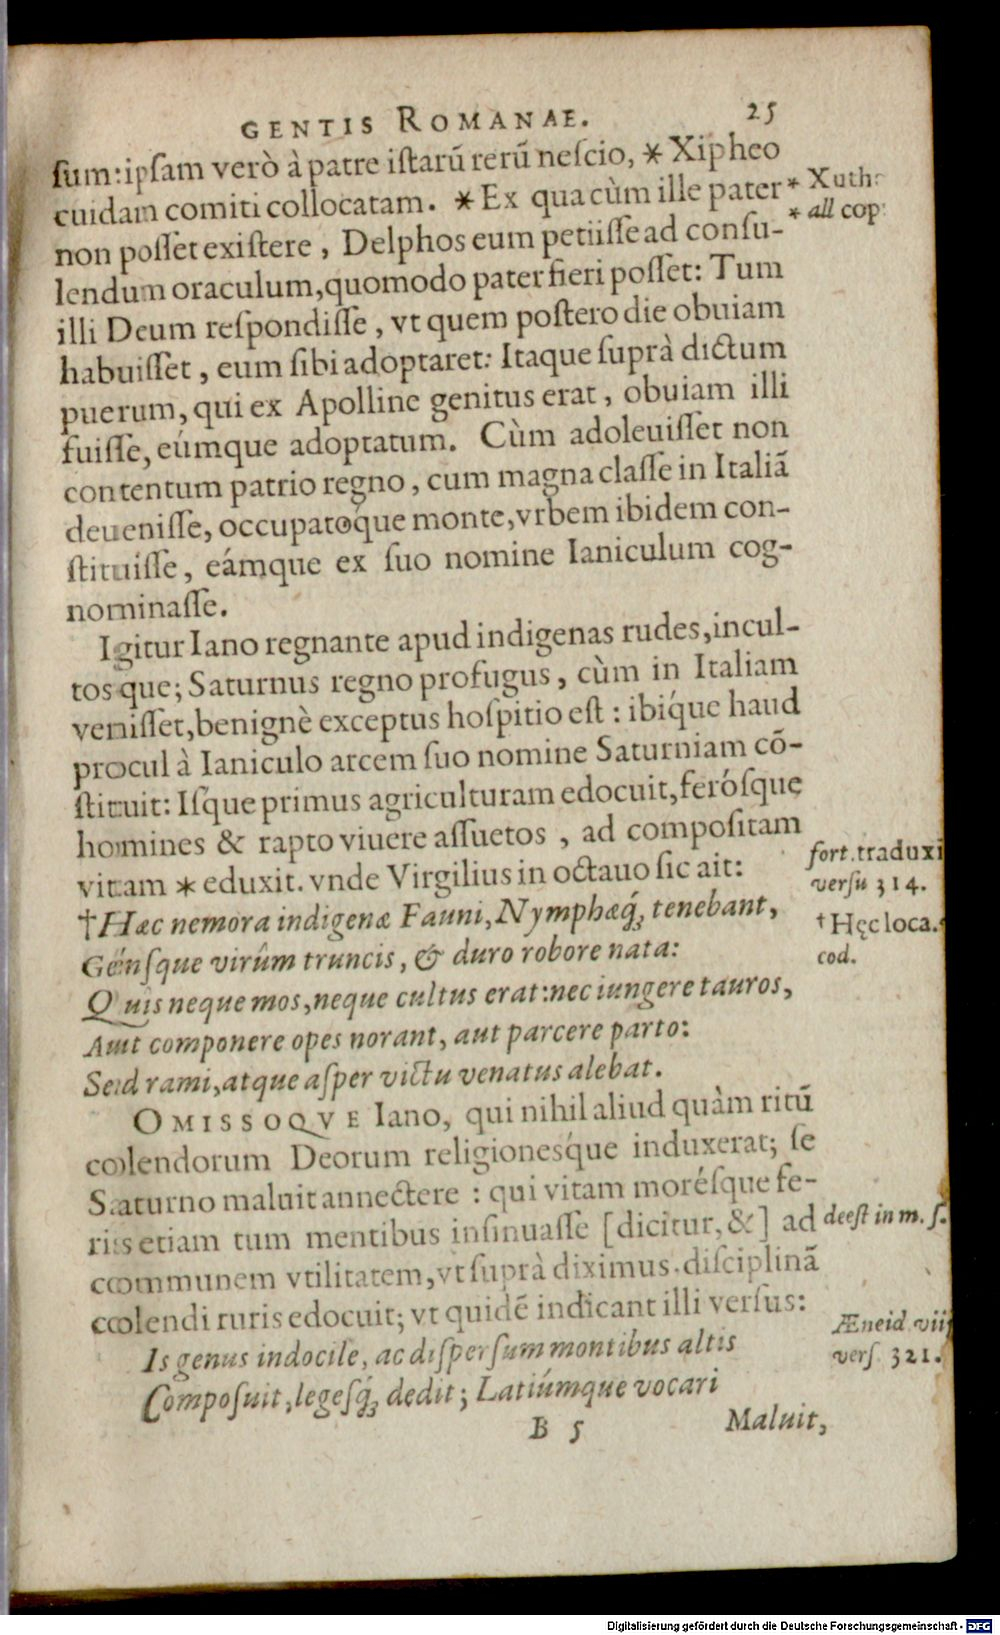 GENTIS ROMANAE. 25
ſum: ipſam verò à patre iſtarũ rerũ neſcio, * Xipheo
cuidam comiti collocatam. * Ex qua cùm ille pater
* Xuth
* all cop
non poſſet exiſtere, Delphos eum petiiſſe ad conſu-
lendum oraculum, quomodo pater fieri poſſet: Tum
illi Deum reſpondiſſe, vt quem poſtero die obuiam
habuiſſet, eum ſibi adoptaret: Itaque ſuprà dictum
puerum, qui ex Apolline genitus erat, obuiam illi
fuiſſe, eúmque adoptatum. Cùm adoleuiſſet non
contentum patrio regno, cum magna claſſe in Italiã
deueniſſe, occupatóque monte, vrbem ibidem con-
ſtituiſſe, eámque ex ſuo nomine Ianiculum cog-
nominaſſe.
Igitur Iano regnante apud indigenas rudes, incul-
tosque; Saturnus regno profugus, cùm in Italiam
veniſſet, benignè exceptus hoſpitio eſt: ibíque haud
procul à Ianiculo arcem ſuo nomine Saturniam cõ-
ſtituit: Iſque primus agriculturam edocuit, feróſque
homines & rapto viuere aſſuetos, ad compoſitam
vitam * eduxit. vnde Virgilius in octauo ſic ait:
fort. traduxi
verſu 314.
† Hæc nemora indigenæ Fauni, Nymphæq́; tenebant,
† Hęc loca.
cod.
Génſque virûm truncis, & duro robore nata:
Quis neque mos, neque cultus erat: nec iungere tauros,
Aut componere opes norant, aut parcere parto:
Sed rami, atque aſper victu venatus alebat.
OMISSOQVE Iano, qui nihil aliud quàm ritũ
colendorum Deorum religionesq́ue induxerat; ſe
Saturno maluit annectere: qui vitam moréſque fe-
ris etiam tum mentibus inſinuaſſe [dicitur, &] ad
deeſt in m. ſ.
communem vtilitatem, vt ſuprà diximus. diſciplinã
colendi ruris edocuit; vt quidẽ indicant illi verſus:
Is genus indocile, ac diſperſum montibus altis
Æneid. viij
verſ. 321.
Compoſuit, legeſq́; dedit; Latiúmque vocari
B 5 Maluit,
Digitalisierung gefördert durch die Deutsche Forschungsgemeinschaft - DFG